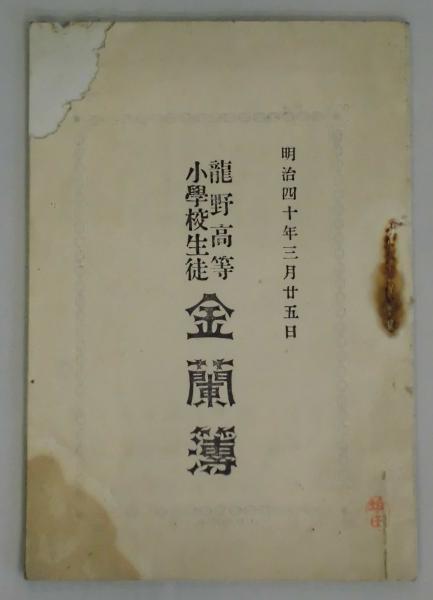 明治四十年三月廿五日
龍野高等
小學校生徒
金蘭簿